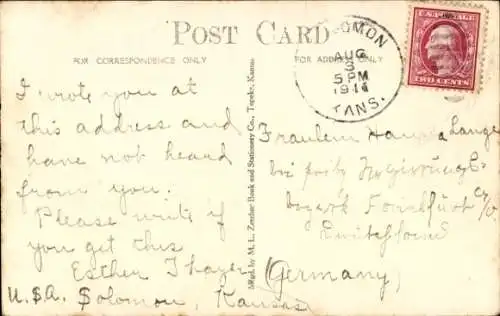 POST CARD
FOR CORRESPONDENCE ONLY
FOR ADDRESS ONLY
SOLOMON
AUG
3
5 PM
1911
KANS.
TWO CENTS
I wrote you at
this address and
have not heard
from you.
Please write if
you get this
Esther Thayer
U.S.A. Solomon, Kansas
Mfg'd. by M. L. Zercher Book and Stationery Co., Topeka, Kansas.
Fraulein Lange
bei
bezirk Frankfurt
(Germany)